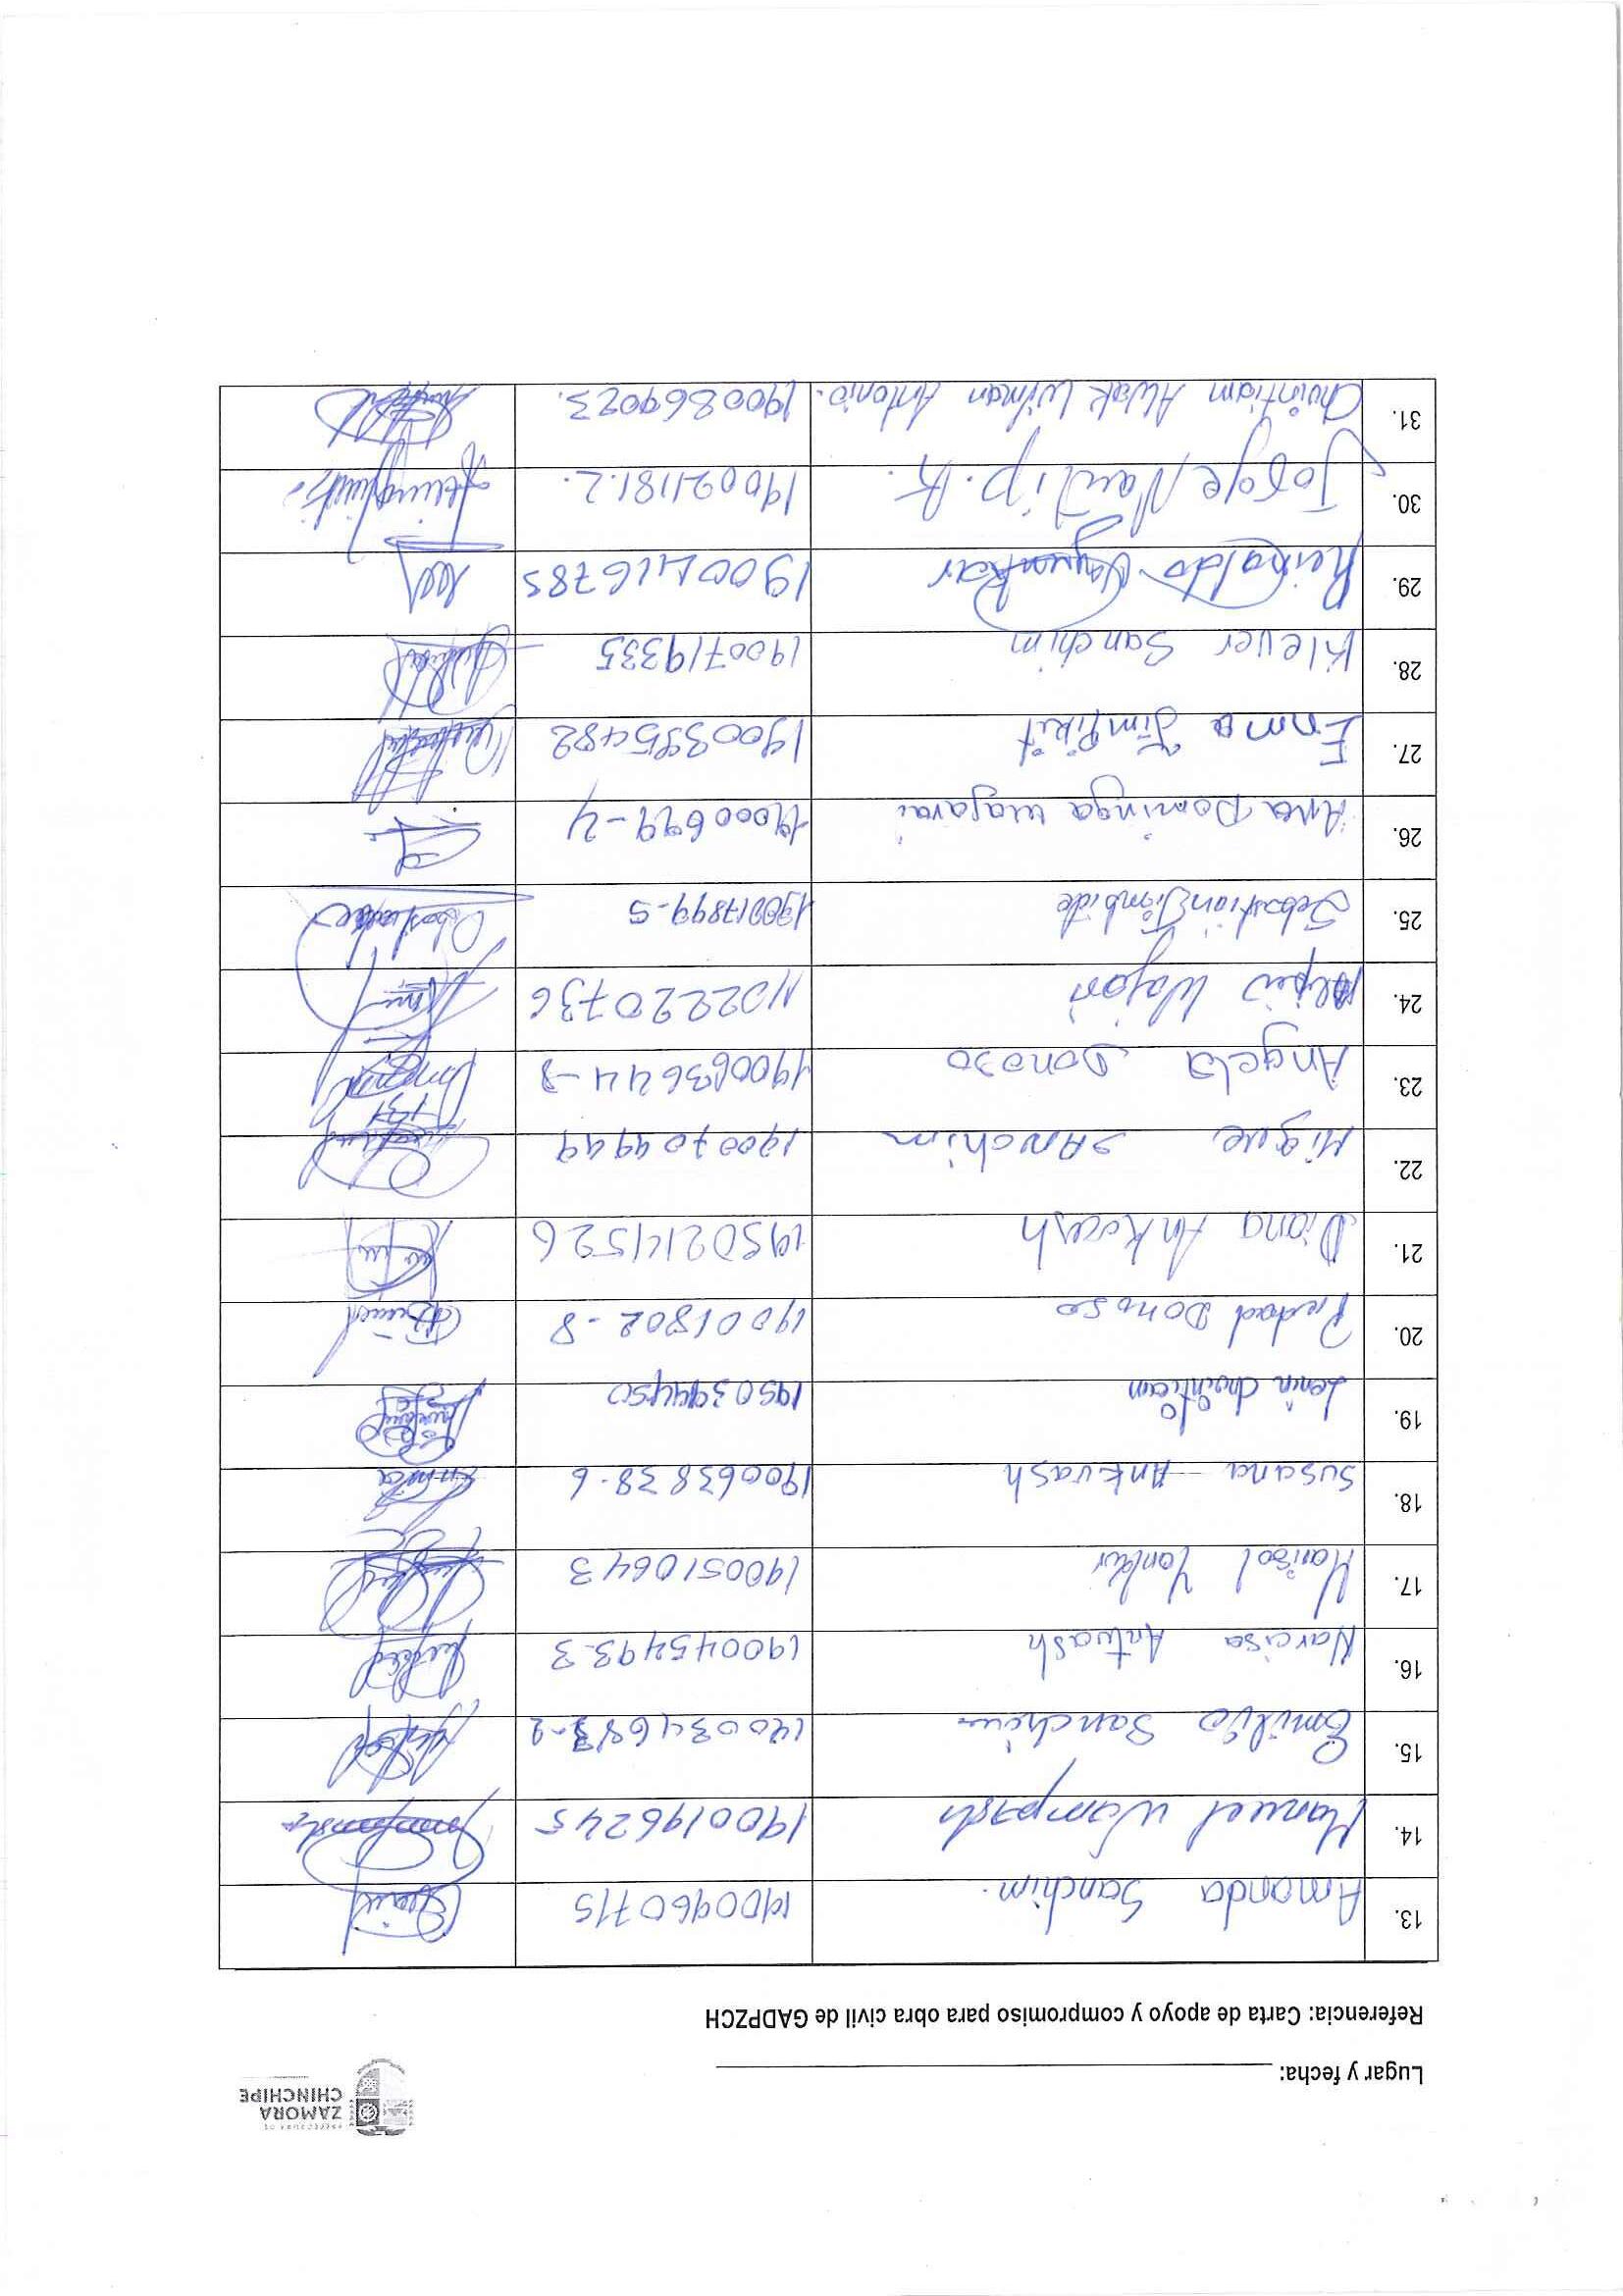 PREFECTURA DE
ZAMORA
CHINCHIPE
Lugar y fecha:
Referencia: Carta de apoyo y compromiso para obra civil de GADPZCH
13. Amanda Sanchim. 1900960715
14. Manuel Wampash 1900196245
15. Emilio Sanchim
16. Narcisa Ankuash 190045493-3
17. Marisol Yankur 1900510643
18. Susana Ankuash 190063838-6
19. Lenin chuintiam 1950394450
20. Piedad Donoso 19001802-8
21. Diana Ankuash 1950214526
22. Migue SANchim 1900704949
23. Angela Donoso 190063644-8
24. Wajari 1102220736
25. Sebastian Timbide 190017899-5
26. Ana Dominga Wajarai 19000699-4
27. Enma Jimpikit 1900395482
28. Klever Sanchim 1900719335
29. Reinaldo 1900416785
30. Jorge Nantip. A. 190021181.2.
31. Chuintiam Wilman Antonio. 1900869023.